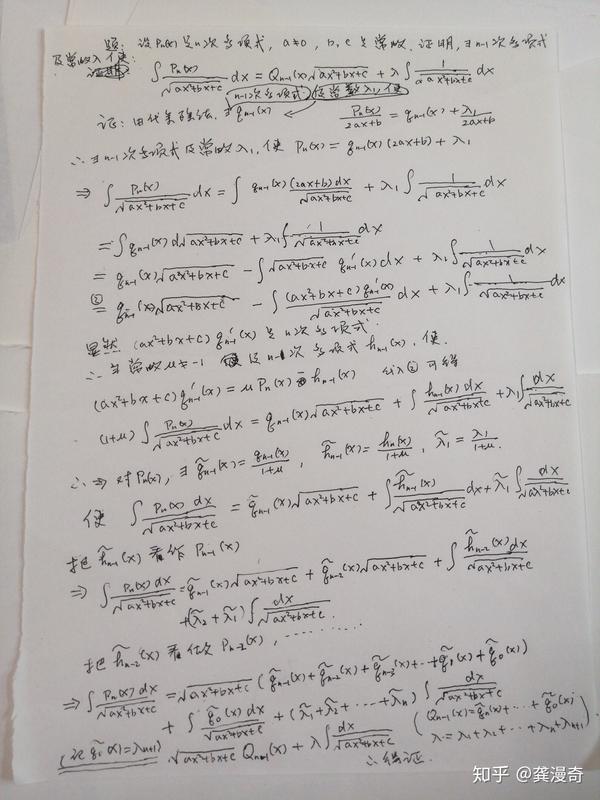 题: 设 Pₙ(x) 是 n 次多项式, a≠0, b, c 是常数. 证明, ∃ n-1 次多项式
及常数 λ, 使
∫ Pₙ(x)/√(ax²+bx+c) dx = Qₙ₋₁(x)√(ax²+bx+c) + λ∫ 1/√(ax²+bx+c) dx
证: 由代数除法, ∃ n-1次多项式 qₙ₋₁(x) 及常数 λ₁, 使 Pₙ(x)/(2ax+b) = qₙ₋₁(x) + λ₁/(2ax+b)
∴ ∃ n-1 次多项式及常数 λ₁, 使 Pₙ(x) = qₙ₋₁(x)(2ax+b) + λ₁
⇒ ∫ Pₙ(x)/√(ax²+bx+c) dx = ∫ qₙ₋₁(x)(2ax+b)dx/√(ax²+bx+c) + λ₁∫ 1/√(ax²+bx+c) dx
= ∫qₙ₋₁(x) d√(ax²+bx+c) + λ₁∫ 1/√(ax²+bx+c) dx
= qₙ₋₁(x)√(ax²+bx+c) - ∫√(ax²+bx+c) q'ₙ₋₁(x) dx + λ₁∫ 1/√(ax²+bx+c) dx
②= qₙ₋₁(x)√(ax²+bx+c) - ∫ (ax²+bx+c)q'ₙ₋₁(x)/√(ax²+bx+c) dx + λ₁∫ 1/√(ax²+bx+c) dx
显然 (ax²+bx+c) q'ₙ₋₁(x) 是 n 次多项式.
∴ ∃ 常数 μ≠-1 及 n-1 次多项式 hₙ₋₁(x), 使
(ax²+bx+c)q'ₙ₋₁(x) = μPₙ(x) - hₙ₋₁(x) 代入② 可得
(1+μ)∫ Pₙ(x)/√(ax²+bx+c) dx = qₙ₋₁(x)√(ax²+bx+c) + ∫ hₙ₋₁(x)dx/√(ax²+bx+c) + λ₁∫ dx/√(ax²+bx+c)
∴ ⇒ 对 Pₙ(x), ∃ q̃ₙ₋₁(x) = qₙ₋₁(x)/(1+μ), h̃ₙ₋₁(x) = hₙ(x)/(1+μ), λ̃₁ = λ₁/(1+μ).
使 ∫ Pₙ(x) dx/√(ax²+bx+c) = q̃ₙ₋₁(x)√(ax²+bx+c) + ∫ h̃ₙ₋₁(x)/√(ax²+bx+c) dx + λ̃₁∫ dx/√(ax²+bx+c)
把 h̃ₙ₋₁(x) 看作 Pₙ₋₁(x)
⇒ ∫ Pₙ(x) dx/√(ax²+bx+c) = q̃ₙ₋₁(x)√(ax²+bx+c) + q̃ₙ₋₂(x)√(ax²+bx+c) + ∫ h̃ₙ₋₂(x)dx/√(ax²+bx+c)
+(λ̃₂+λ̃₁)∫ dx/√(ax²+bx+c).
把 h̃ₙ₋₂(x) 看做 Pₙ₋₂(x), ⋯⋯⋯
⇒ ∫ Pₙ(x) dx/√(ax²+bx+c) = √(ax²+bx+c) (q̃ₙ₋₁(x)+q̃ₙ₋₂(x)+q̃ₙ₋₃(x)+⋯+q̃₁(x)+q̃₀(x))
+ ∫ q̃₀(x) dx/√(ax²+bx+c) + (λ̃₁+λ̃₂+⋯+λ̃ₙ) ∫ dx/√(ax²+bx+c)
(记 q̃₀(x)=λₙ₊₁) √(ax²+bx+c) Qₙ₋₁(x) + λ∫ dx/√(ax²+bx+c) (Qₙ₋₁(x)=q̃ₙ(x)+⋯+q̃₀(x)
λ=λ₁+λ₂+⋯+λₙ+λₙ₊₁).
∴ 得证.
知乎 @龚漫奇